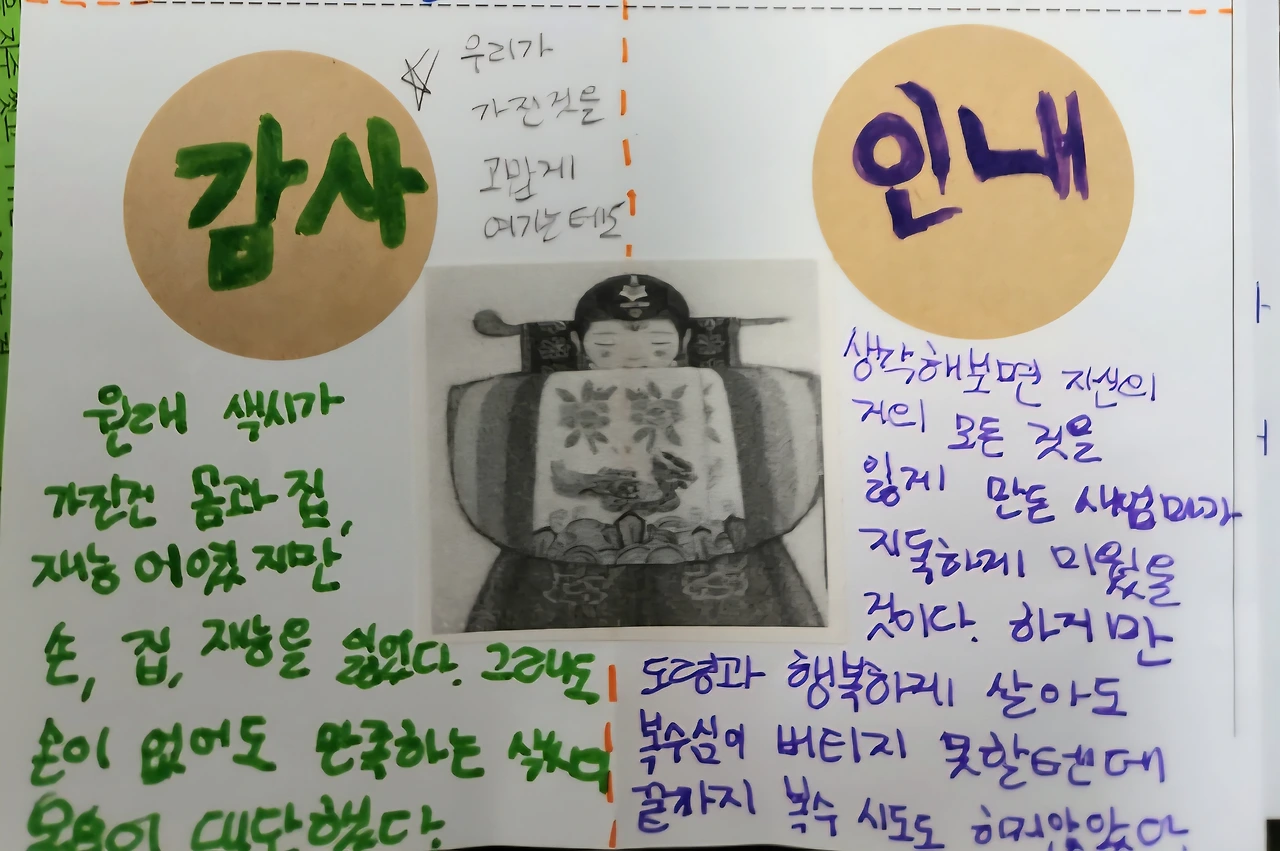 감사
우리가
가진것을
고맙게
여기는 태도
원래 색시가
가진건 몸과 집,
재능 이였지만
손, 집, 재능을 잃었다. 그래도
손이 없어도 만족하는 색시의
모습이 대단했다.
인내
생각해보면 자신의
거의 모든 것을
잃게 만든 새엄마가
지독하게 미웠을
것이다. 하지만
도령과 행복하게 살아도
복수심이 버티지 못할텐데
끝까지 복수 시도도 하지않았다